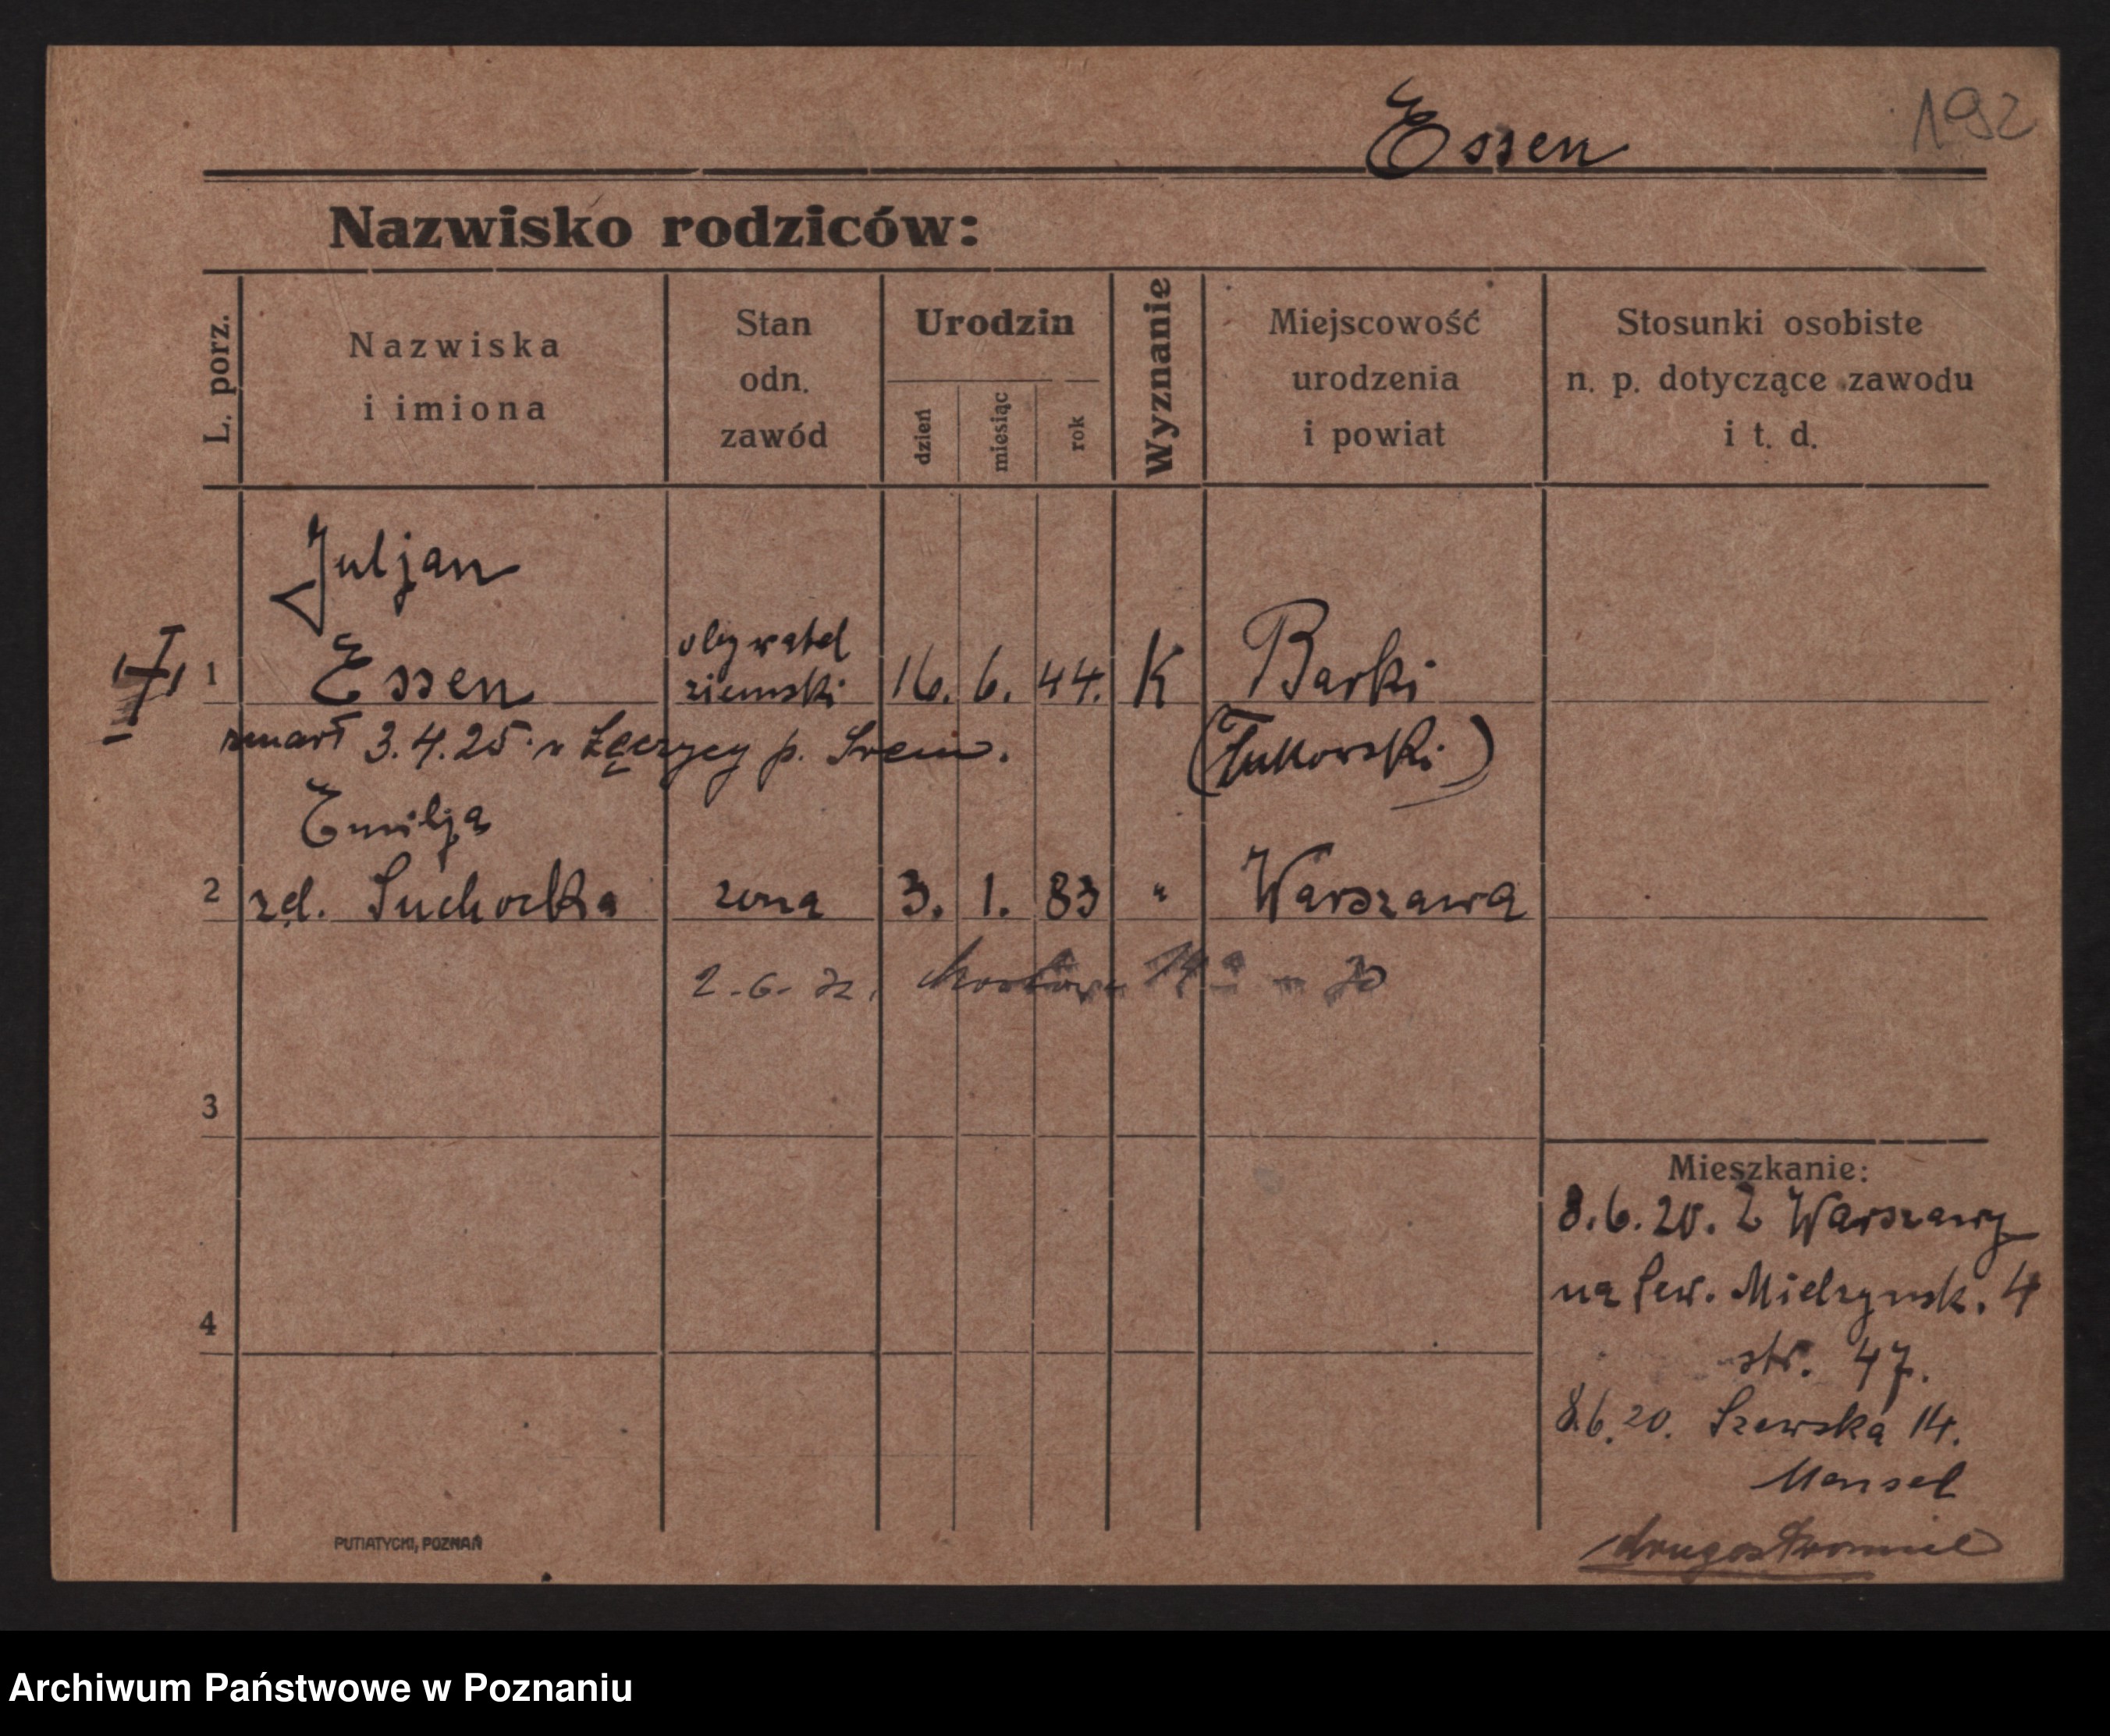 Essen
192
Nazwisko rodziców:
L. porz.
Nazwiska
i imiona
Stan
odn.
zawód
Urodzin
dzień
miesiąc
rok
Wyznanie
Miejscowość
urodzenia
i powiat
Stosunki osobiste
n. p. dotyczące zawodu
i t. d.
Juljan
1 Essen obywatel ziemski 16. 6. 44. K Barki
zmarł 3.4.25. w Łęczycy p. Śrem.
Emilja
2 zd. Suchocka żona 3. 1. 83 " Warszawa
2.6.
3
4
Mieszkanie:
8.6.20. Z Warszawy
na Sew. Mielżyńsk. 4
str. 47.
8.6.20. Szewska 14.
Mensel
PUTIATYCKI, POZNAŃ
Archiwum Państwowe w Poznaniu